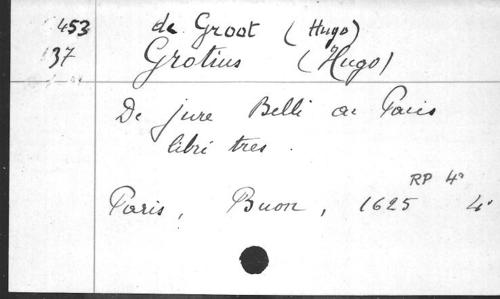 453 de Groot (Hugo)
137 Grotius (Hugo)
De jure Belli ac Pacis
libri tres.
RP 4°
Paris, Buon, 1625 4°